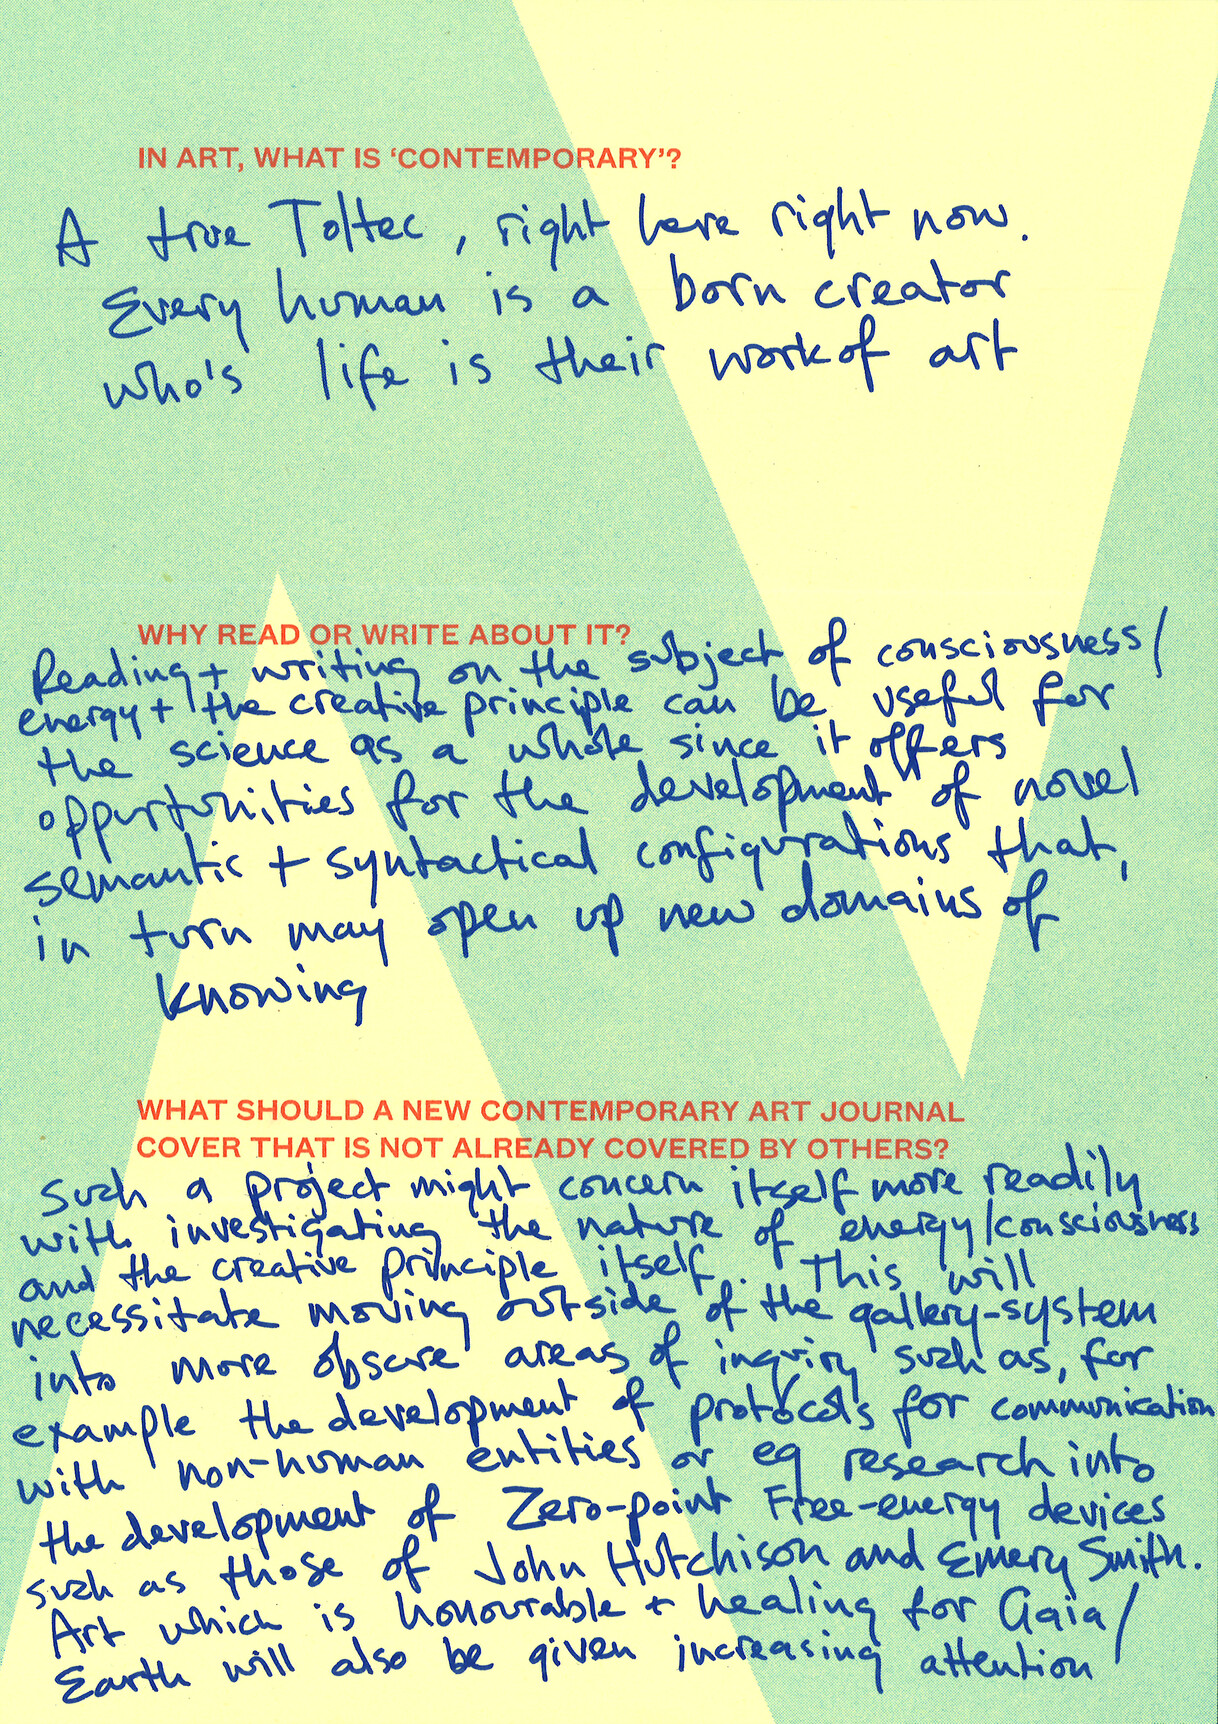 IN ART, WHAT IS ‘CONTEMPORARY’?
A true Toltec, right here right now.
Every human is a born creator
who's life is their work of art
WHY READ OR WRITE ABOUT IT?
Reading + writing on the subject of consciousness/
energy + the creative principle can be useful for
the science as a whole since it offers
oppurtunities for the development of novel
semantic + syntactical configurations that,
in turn may open up new domains of
knowing
WHAT SHOULD A NEW CONTEMPORARY ART JOURNAL
COVER THAT IS NOT ALREADY COVERED BY OTHERS?
Such a project might concern itself more readily
with investigating the nature of energy/consciousness
and the creative principle itself. This will
necessitate moving outside of the gallery-system
into more obscure areas of inquiry such as, for
example the development of protocols for communication
with non-human entities or eg research into
the development of Zero-point Free-energy devices
such as those of John Hutchison and Emery Smith.
Art which is honourable + healing for Gaia/
Earth will also be given increasing attention